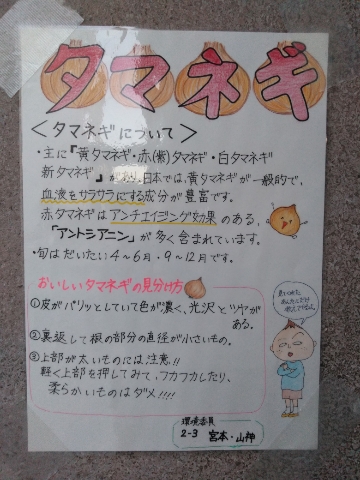 タマネギ
＜タマネギについて＞
・主に『黄タマネギ・赤(紫)タマネギ・白タマネギ
新タマネギ』があり、日本では、黄タマネギが一般的で、
血液をサラサラにする成分が豊富です。
赤タマネギはアンチエイジング効果のある、
「アントシアニン」が多く含まれています。
・旬はだいたい4～6月・9～12月です。
おいしいタマネギの見分け方
①皮がパリッとしていて色が濃く、光沢とツヤが
ある。
②裏返して根の部分の直径が小さいもの。
③上部が太いものには注意!!
軽く上部を押してみて、フカフカしたり、
柔らかいものはダメ!!!!
環境委員
2-3 宮本・山神